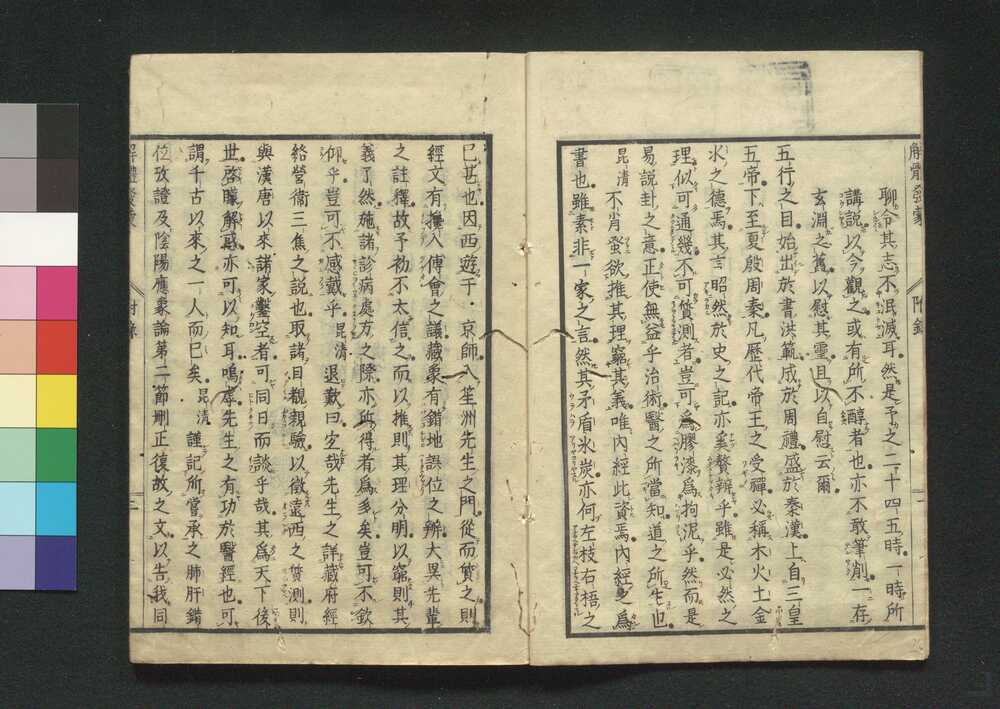 解體發蒙 附錄
聊令其志不泯滅耳然是予之二十四五時一時所
講說以今觀之或有所不醇者也亦不敢筆削一存
玄淵之舊以慰其靈且以自慰云爾
五行之目始出於書洪範成於周禮盛於秦漢上自三皇
五帝下至夏殷周秦凡歷代帝王之受禪必稱木火土金
水之德焉其言昭然於史之記亦奚贅辨乎雖是必然之
理似可通幾不可質測者豈可為膠漆為拘泥乎然而是
易說卦之意正使無益乎治術醫之所當知道之所生也
昆清不肖發欲推其理窮其義唯內經此資焉內經之為
書也雖素非一家之言然其矛盾氷炭亦何左枝右梧之
已甚也因西遊于京師入笙洲先生之門從而質之則
經文有攙入傳會之議藏象有錯地誤位之辨大異先輩
之註釋故予初不太信之而以推則其理分明以窮則其
義了然施諸診病處方之際亦所得者為多矣豈可不欽
仰乎豈可不感戴乎昆清退歎曰宏哉先生之詳藏府經
絡營衞三焦之說也取諸目覩親驗以徵遠西之質測則
與漢唐以來諸家鑿空者可同日而談乎哉其為天下後
世啓矇解惑亦可以知耳嗚虖先生之有功於醫經也可
謂千古以來之一人而已矣昆清謹記所嘗承之肺肝錯
位攷證及陰陽應象論第二節刪正復故之文以告我同
解體發蒙 附錄 三